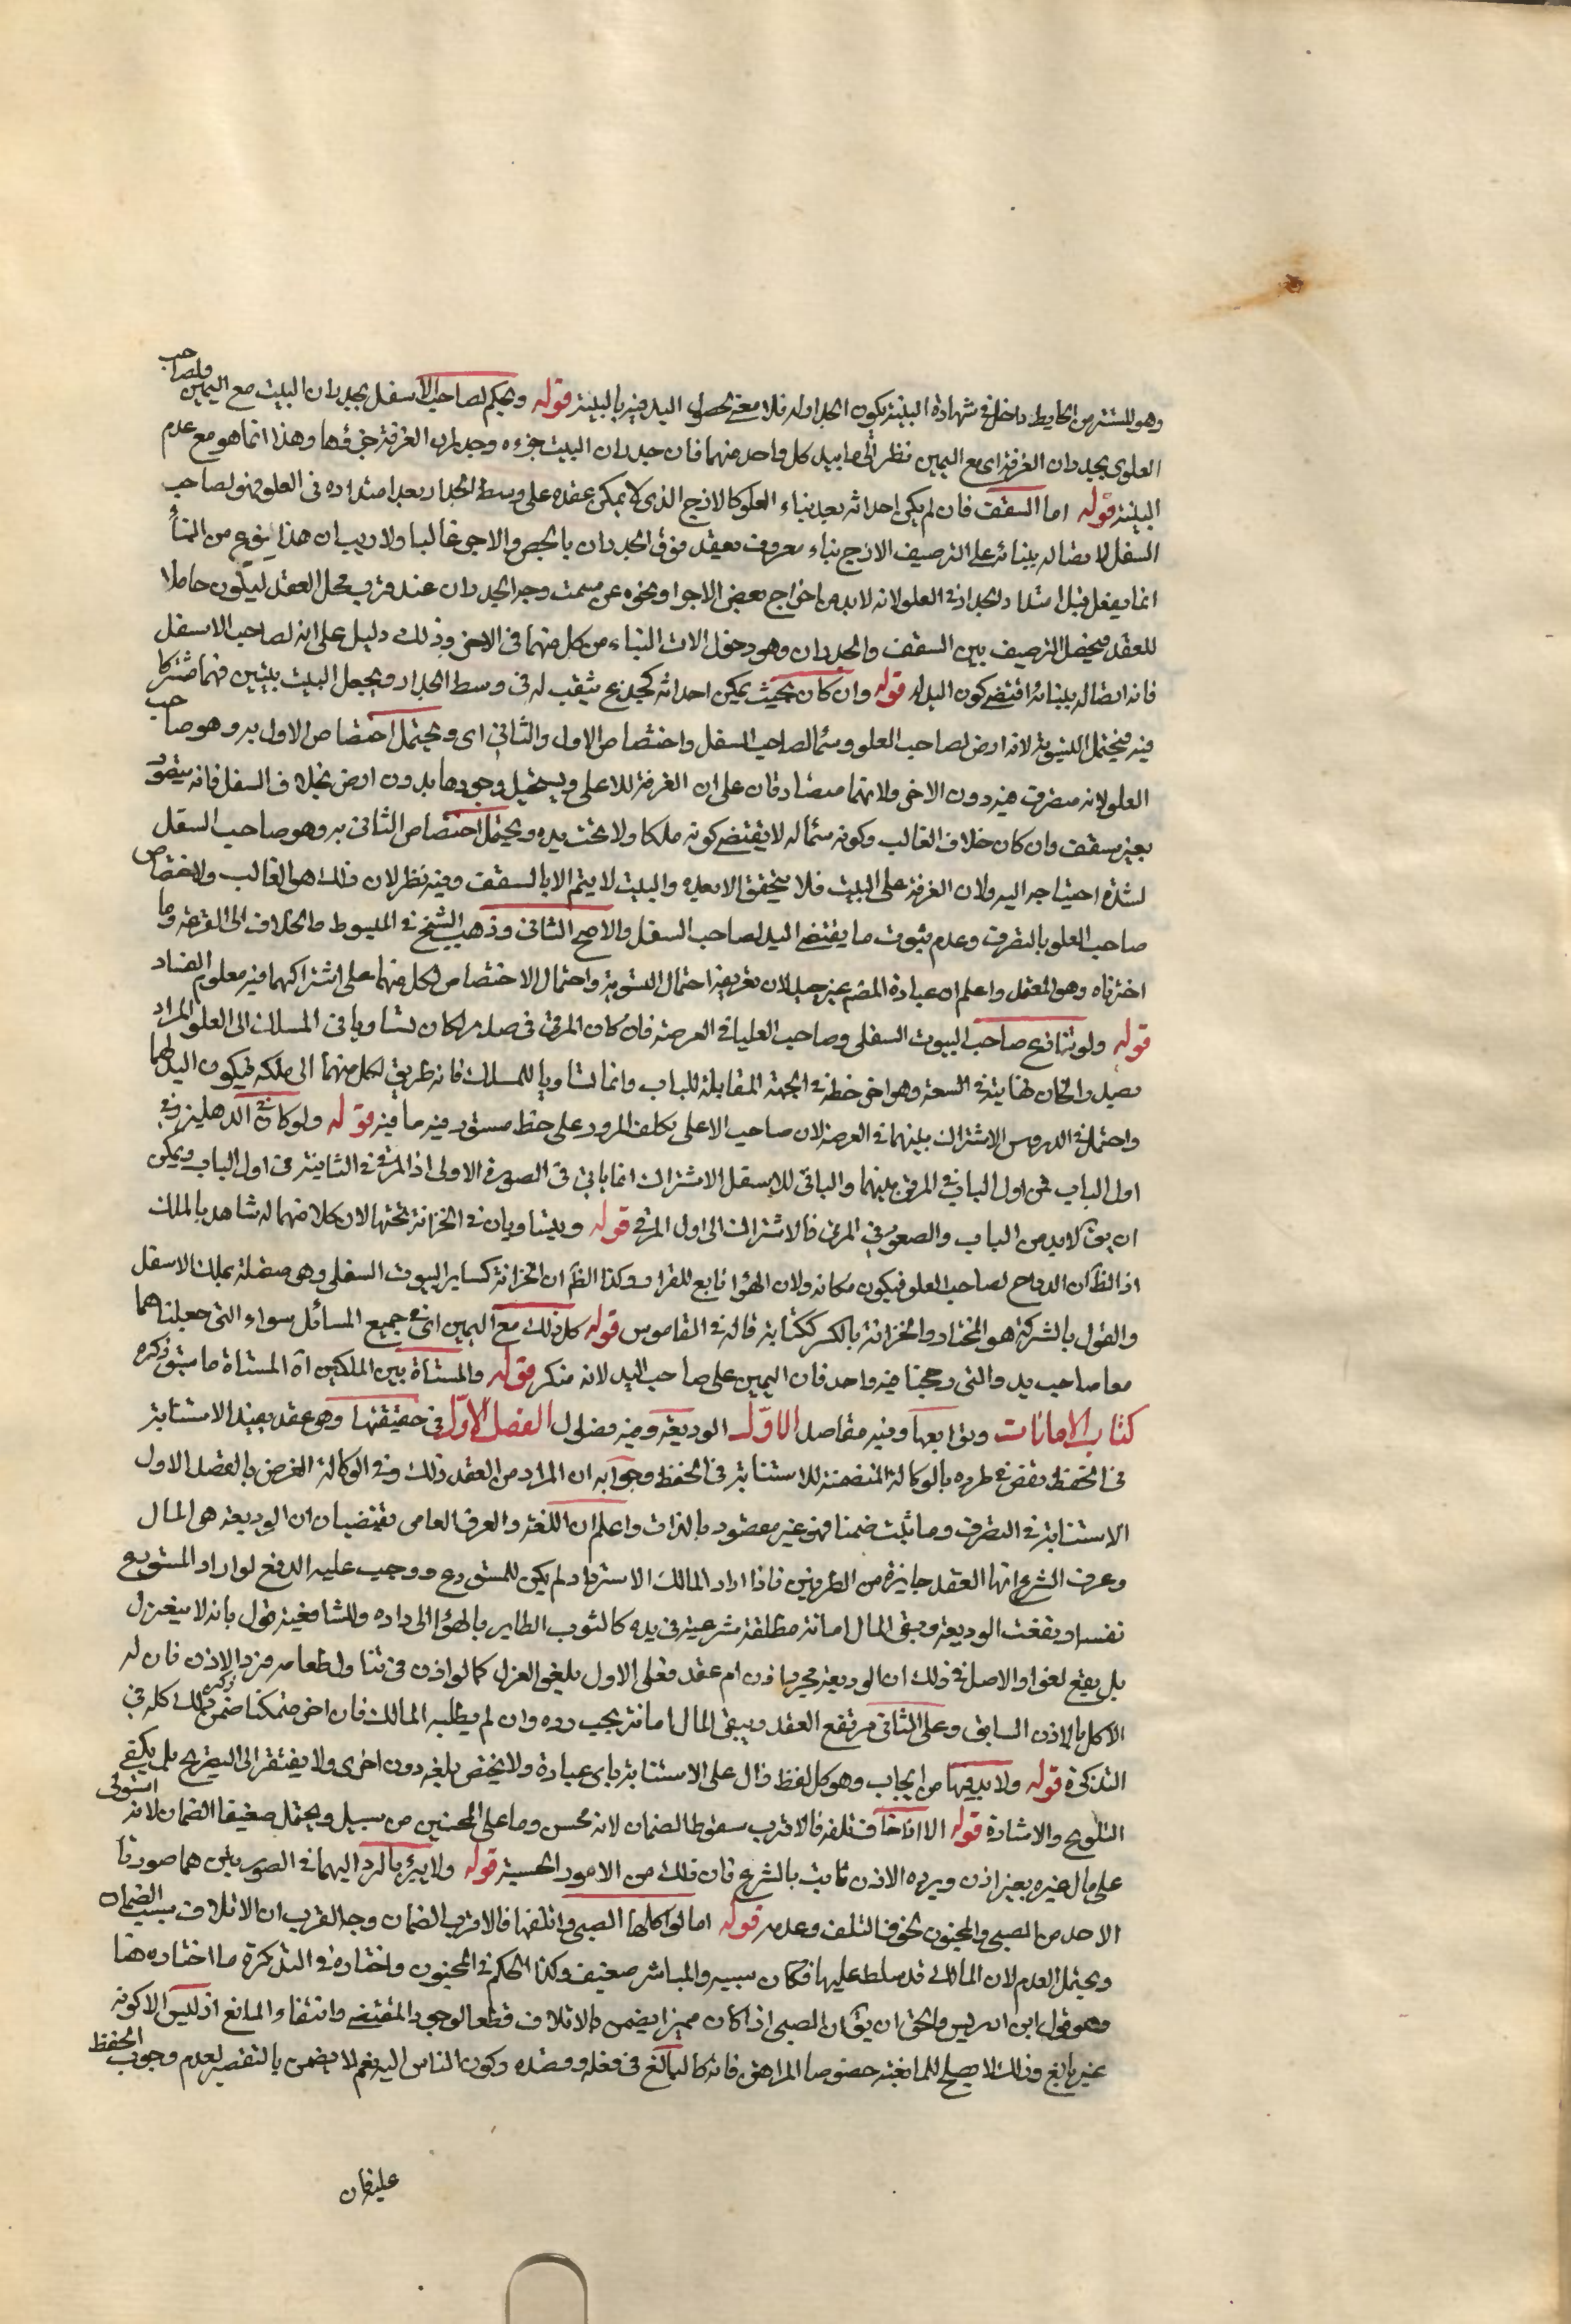 وهو المستمر من الحايط داخل في شهادة البينة بكون الجدار له فلا معنى لحصول اليد فيه بالبينة قوله ويحكم لصاحب الاسفل بجدران البيت مع اليمين ولصاحب
العلوى بجدران الغرفة اى مع اليمين نظرا الى ما بيد كل واحد منهما فان جدران البيت جزءه وجدران الغرفة جزؤها وهذا انما هو مع عدم
البينة قوله اما السقف فان لم يكن احداثه بعد بناء العلو كالازج الذى لا يمكن عقده على وسط الجدار بعد امتداده فى العلو فهو لصاحب
السفل لاتصاله ببنائه على الترصيف الازج بناء معروف يعقد فوق الجدران بالجص والاجر غالبا ولا ريب ان هذا النوع من البناء
انما يفعل قبل امتداد الجدار فى العلو لانه لا بد من اخراج بعض الاجر او نحوه عن سمت وجه الجدران عند قرب محل العقد ليكون حاملا
للعقد فيحصل الترصيف بين السقف والجدران وهو دخول الات البناء من كل منهما فى الاخر وذلك دليل على انه لصاحب الاسفل
فانه اتصاله ببنائه اقتضى كون اليد له قوله وان كان بحيث يمكن احداثه كجذع يثقب له فى وسط الجدار ويجعل البيت بيتين فهما مشتركا
فيه فيحتمل التسوية لانه ارض لصاحب العلو وسماء لصاحب السفل واختصاص الاول والثانى اى ويحتمل اختصاص الاول به وهو صاحب
العلو لانه متصرف فيه دون الاخر ولانهما متصادقان على ان الغرفة للاعلى ويستحيل وجودها بدون ارض بخلاف السفل فانه يتصور
بغير سقف وان كان خلاف الغالب وكونه سماء له لا يقتضى كونه ملكا ولا تحت يده ويحتمل اختصاص الثانى به وهو صاحب السفل
لشدة احتياجه اليه ولان الغرفة على البيت فلا يتحقق الا بعده والبيت لا يتم الا بالسقف وفيه نظر لان ذلك هو الغالب ولاختصاص
صاحب العلو بالتصرف وعدم ثبوت ما يقتضى اليد لصاحب السفل والاصح الثانى وذهب الشيخ فى المبسوط والخلاف الى القرعة وما
اخترناه وهو المعتمد واعلم ان عبارة المصنف غير جيدة لان تفريعه احتمال التسوية واحتمال الاختصاص لكل منهما على اشتراكهما فيه معلوم الفساد
قوله ولو تنازع صاحب البيوت السفلى وصاحب العليا فى العرصة فان كان المرقى فى صدر الخان تساويا فى المسلك الى العلو المراد
بصدر الخان نهايته فى السعة وهو اخر خطة فى الجهة المقابلة للباب وانما تساويا للمسلك فانه طريق لكل منهما الى ملكه فيكون اليد لهما
واحتمل فى الدروس الاشتراك بينهما فى العرصة لان صاحب الاعلى يكلف المرور على خط مستو فيه ما فيه قوله ولو كان فى الدهليز وفى
اول الباب فمن اول الباب الى المرقى بينهما والباقى للاسفل الاشتراك انما باقى فى الصورة الاولى اذ المرقى فى الثانية فى اول الباب ويمكن
ان يقال لا بد من الباب والصعود فى المرقى فالاشتراك الى اول المرقى قوله ويتساويان فى الخزانة تحتها لان كلا منهما له شاهد بالملك
اذ الظاهر ان الدرج لصاحب العلو فيكون مكانه ولان الهوا تابع للقرار وكذا الظاهر ان الخزانة كساير البيوت السفلى وهى متصلة بملك الاسفل
والقول بالشركة هو المختار والخزانة بالكسر ككتابة قاله فى القاموس قوله كل ذلك مع اليمين اى فى جميع المسائل سواء التى جعلناهما
معا صاحب يد والتى رجحنا فيه واحد فان اليمين على صاحب اليد لانه منكر قوله والمسناة بين الملكين اه المسناة ما سبق ذكره
كتاب الامانات وتوابعها وفيه مقاصد الاول الوديعة وفيه فصلول الفصل الاول فى حقيقتها وهى عقد يفيد الاستنابة
فى الحفظ ينقض فى طرده بالوكالة المتضمنة للاستنابة فى الحفظ وجوابه ان المراد من العقد ذلك وفى الوكالة الغرض بالقصد الاول
الاستنابة فى التصرف وما ثبت ضمنا فهو غير مقصود بالذات واعلم ان اللغة والعرف العامى يقتضيان ان الوديعة هى المال
وعرف الشرع انها العقد جايزة من الطرفين فاذا اراد المالك الاسترداد لم يكن للمستودع ووجب عليه الدفع لو اراد المستودع
نفسه ارتفعت الوديعة وبقى المال امانة مطلقة شرعية فى يده كالثوب الطاير بالهوا الى داره وللشافعية قول بانه لا ينعزل
بل يقع لغوا والاصل فى ذلك ان الوديعة مجرد اذن ام عقد فعلى الاول يلغو العزل كما لو اذن فى تناول طعامه فرد الاذن فان له
الاكل بالاذن السابق وعلى الثانى يرتفع العقد ويبقى المال امانة يجب رده وان لم يطلبه المالك فان اخر متمكنا ضمن ذكر ذلك كله فى
التذكرة قوله ولا بد فيها من ايجاب وهو كل لفظ دال على الاستنابة باى عبارة ولا يختص بلغة دون اخرى ولا يفتقر الى التصريح بل يكفى
التلويح والاشارة قوله الا اذا خاف تلفه فالاقرب سقوط الضمان لانه محسن وما على المحسنين من سبيل ويحتمل ضعيفا الضمان لانه استولى
على مال غيره بغير اذن ويرده الاذن ثابت بالشرع فان ذلك من الامور الحسبية قوله ولا يبرء بالرد اليهما فى الصورتين هما صورتا
الاحد من الصبى والمجنون بخوف التلف وعدمه قوله اما لو اكلها الصبى او اتلفها فالاقرب الضمان وجه القرب ان الاتلاف سبب الضمان
ويحتمل العدم لان المالك قد سلطه عليها فكان سببه والمباشر ضعيف وكذا الحكم فى المجنون واختاره فى التذكرة ما اختاره هنا
وهو قول ابن ادريس والحق ان يقال ان الصبى اذا كان مميزا يضمن بالاتلاف قطعا لوجود المقتضى وانتفاء المانع اذ ليس الا كونه
غير بالغ وذلك لا يصلح للمانعية خصوصا المراهق فانه كالبالغ فى فعله وقصده وكون الناس اليه نعم لا يضمن بالتقصير لعدم وجوب الحفظ
عليه فان